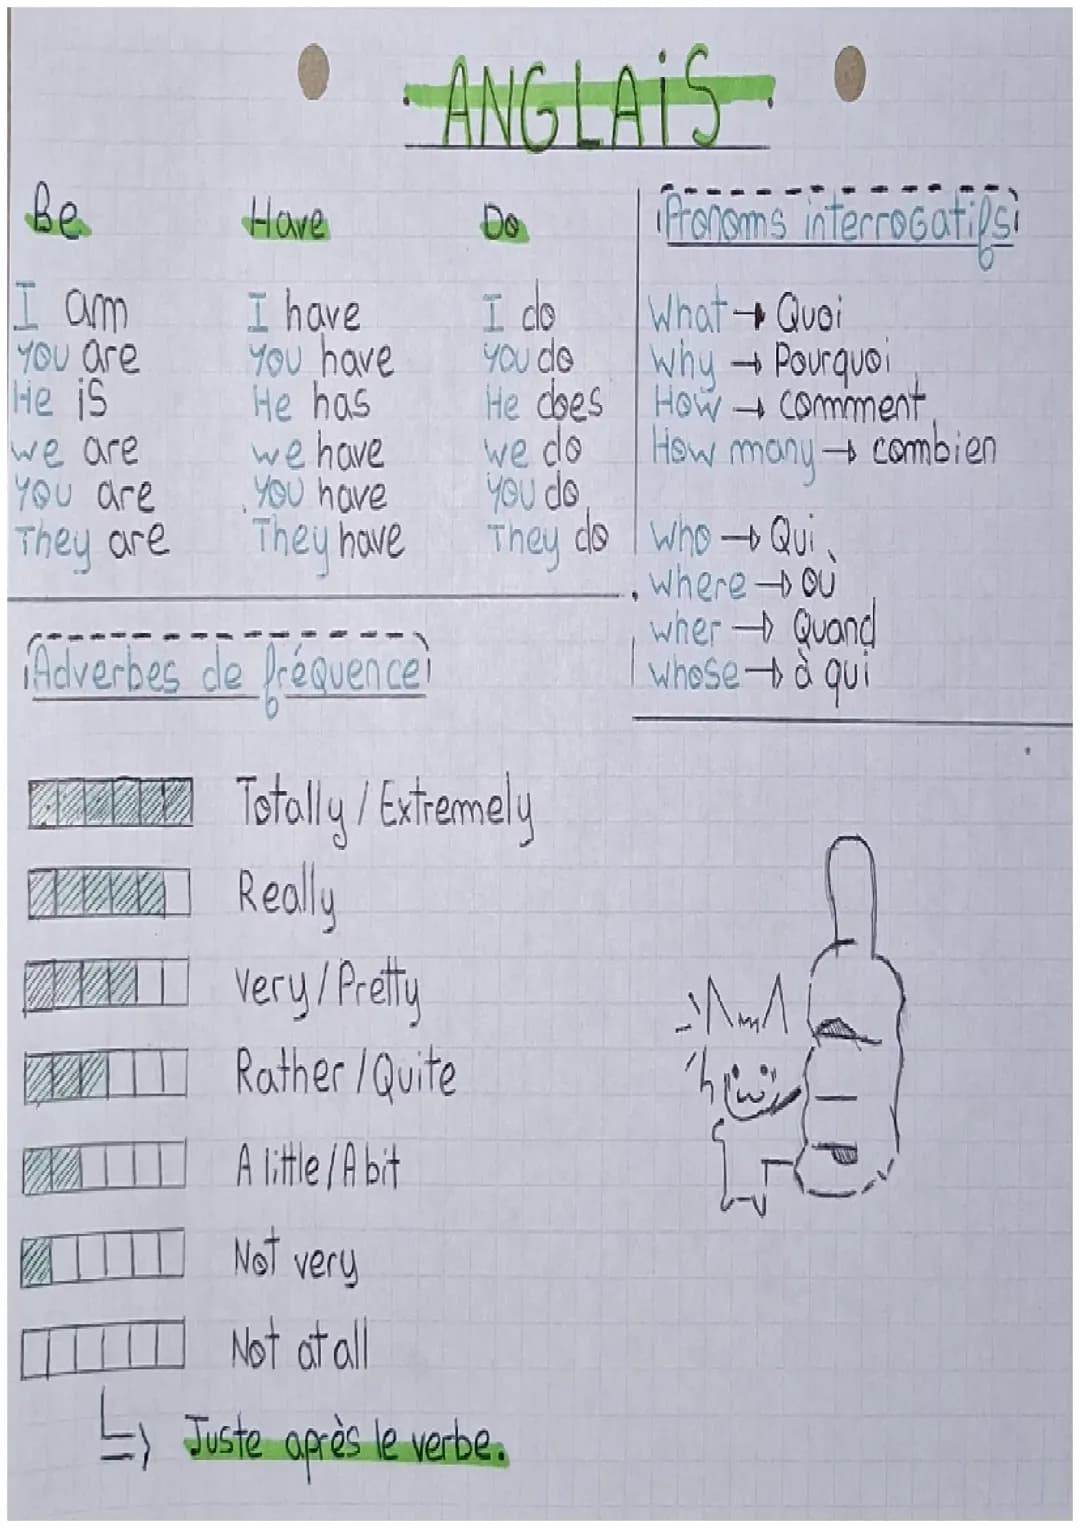 ANGLAiS
Be
I am
You are
He is
we are
You are
They are
Have
I have
You have
He has
we have
You have
They have
Do
I do
You do
He does
we do
You do
They do
Pronoms interrogatifs
What → Quoi
Why → Pourquoi
How → comment
How many → combien
Who → Qui
where → où
wher → Quand
whose → à qui
Adverbes de fréquence
Totally / Extremely
Really
very / Pretty
Rather / Quite
A little / A bit
Not very
Not at all
Juste après le verbe.